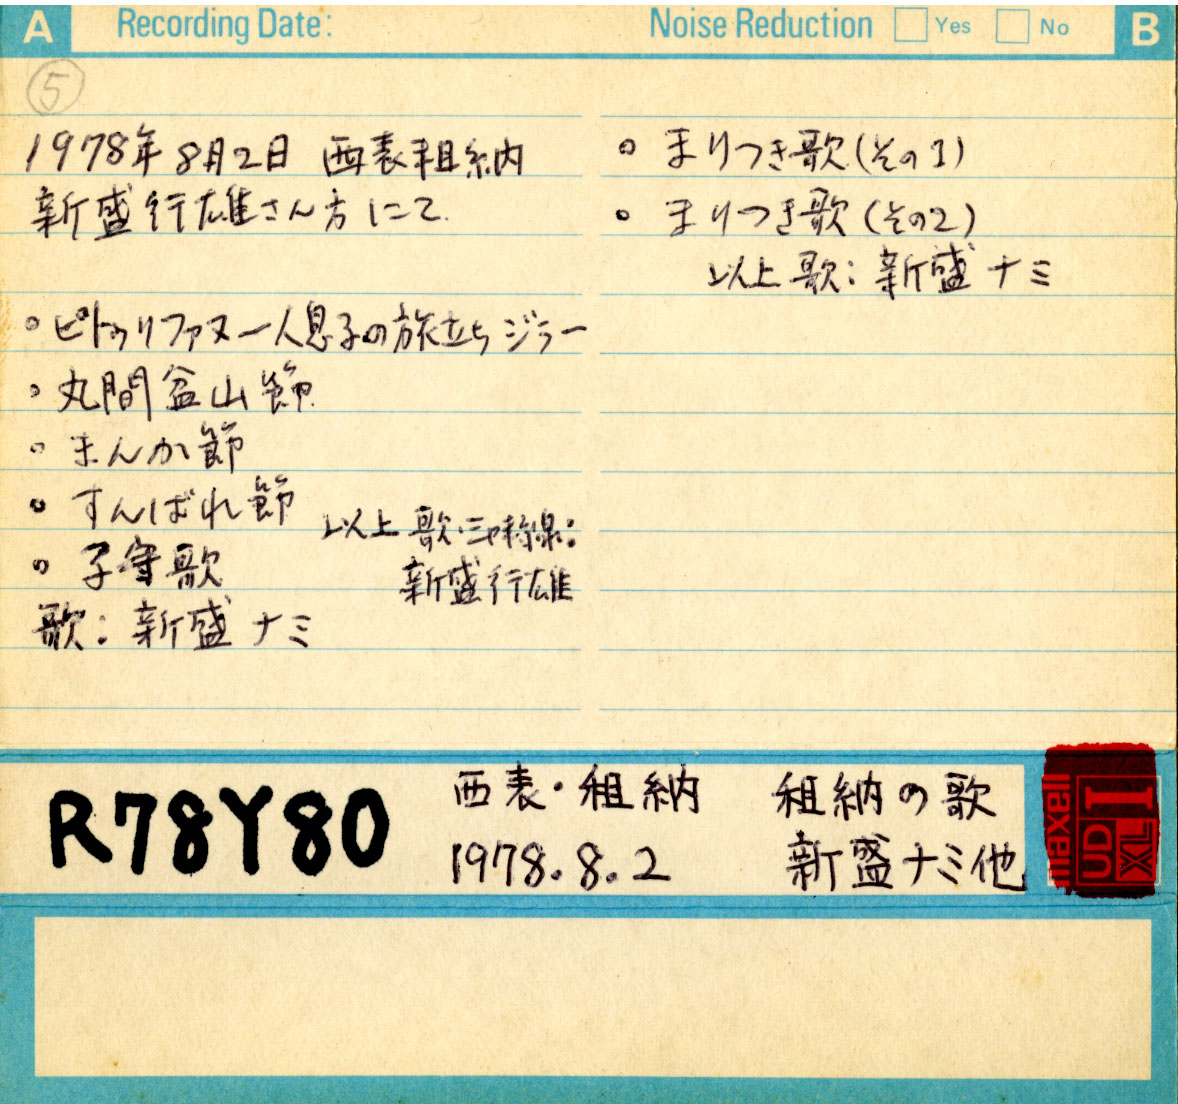 A Recording Date: Noise Reduction Yes No B
⑤
1978年8月2日 西表租納
新盛行雄さん方にて
◦ピトゥリファヌ一人息子の旅立ちジラー
◦丸間盆山節
◦まんか節
◦すんばれ節
以上 歌・三味線:
新盛行雄
◦子守歌
歌:新盛ナミ
◦まりつき歌(その1)
◦まりつき歌(その2)
以上歌:新盛ナミ
R78Y80
西表・租納 租納の歌
1978.8.2 新盛ナミ他
maxell
UD
XL I